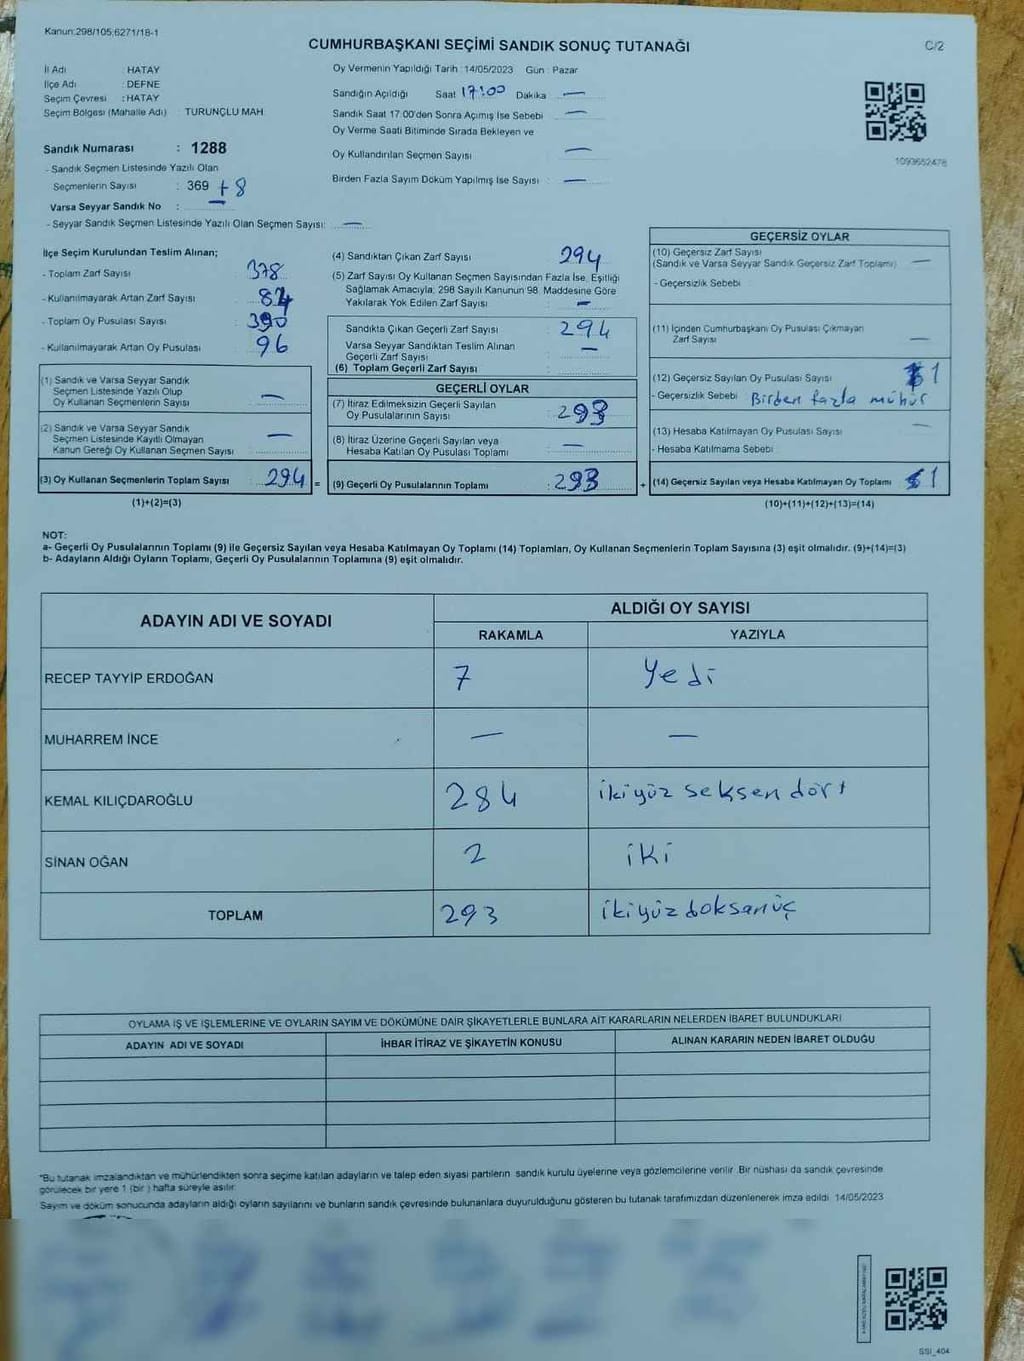 Kanun:298/105,6271/18-1
CUMHURBAŞKANI SEÇİMİ SANDIK SONUÇ TUTANAĞI
C/2
İl Adı : HATAY
İlçe Adı : DEFNE
Seçim Çevresi : HATAY
Seçim Bölgesi (Mahalle Adı) : TURUNÇLU MAH
Oy Vermenin Yapıldığı Tarih : 14/05/2023 Gün : Pazar
Sandığın Açıldığı Saat 17:00 Dakika —
Sandık Saat 17:00'den Sonra Açımış İse Sebebi —
Oy Verme Saati Bitiminde Sırada Bekleyen ve
Oy Kullandırılan Seçmen Sayısı —
Birden Fazla Sayım Döküm Yapılmış İse Sayısı : —
1093652478
Sandık Numarası : 1288
- Sandık Seçmen Listesinde Yazılı Olan
Seçmenlerin Sayısı : 369 + 8
Varsa Seyyar Sandık No : —
- Seyyar Sandık Seçmen Listesinde Yazılı Olan Seçmen Sayısı: —
İlçe Seçim Kurulundan Teslim Alınan;
- Toplam Zarf Sayısı : 378
- Kullanılmayarak Artan Zarf Sayısı : 84
- Toplam Oy Pusulası Sayısı : 390
- Kullanılmayarak Artan Oy Pusulası : 96
(1) Sandık ve Varsa Seyyar Sandık
Seçmen Listesinde Yazılı Olup
Oy Kullanan Seçmenlerin Sayısı —
(2) Sandık ve Varsa Seyyar Sandık
Seçmen Listesinde Kayıtlı Olmayan
Kanun Gereği Oy Kullanan Seçmen Sayısı —
(3) Oy Kullanan Seçmenlerin Toplam Sayısı 294 =
(1)+(2)=(3)
(4) Sandıktan Çıkan Zarf Sayısı 294
(5) Zarf Sayısı Oy Kullanan Seçmen Sayısından Fazla İse, Eşitliği
Sağlamak Amacıyla; 298 Sayılı Kanunun 98. Maddesine Göre
Yakılarak Yok Edilen Zarf Sayısı —
Sandıkta Çıkan Geçerli Zarf Sayısı : 294
Varsa Seyyar Sandıktan Teslim Alınan
Geçerli Zarf Sayısı —
(6) Toplam Geçerli Zarf Sayısı :
GEÇERLİ OYLAR
(7) İtiraz Edilmeksizin Geçerli Sayılan
Oy Pusulalarının Sayısı : 293
(8) İtiraz Üzerine Geçerli Sayılan veya
Hesaba Katılan Oy Pusulası Toplamı —
(9) Geçerli Oy Pusulalarının Toplamı : 293 +
GEÇERSİZ OYLAR
(10) Geçersiz Zarf Sayısı
(Sandık ve Varsa Seyyar Sandık Geçersiz Zarf Toplamı) —
- Geçersizlik Sebebi :
(11) İçinden Cumhurbaşkanı Oy Pusulası Çıkmayan
Zarf Sayısı —
(12) Geçersiz Sayılan Oy Pusulası Sayısı 1
- Geçersizlik Sebebi : Birden fazla mühür
(13) Hesaba Katılmayan Oy Pusulası Sayısı —
- Hesaba Katılmama Sebebi :
(14) Geçersiz Sayılan veya Hesaba Katılmayan Oy Toplamı 1
(10)+(11)+(12)+(13)=(14)
NOT:
a- Geçerli Oy Pusulalarının Toplamı (9) ile Geçersiz Sayılan veya Hesaba Katılmayan Oy Toplamı (14) Toplamları, Oy Kullanan Seçmenlerin Toplam Sayısına (3) eşit olmalıdır. (9)+(14)=(3)
b- Adayların Aldığı Oyların Toplamı, Geçerli Oy Pusulalarının Toplamına (9) eşit olmalıdır.
ADAYIN ADI VE SOYADI
ALDIĞI OY SAYISI
RAKAMLA YAZIYLA
RECEP TAYYİP ERDOĞAN 7 Yedi
MUHARREM İNCE — —
KEMAL KILIÇDAROĞLU 284 ikiyüz seksen dört
SİNAN OĞAN 2 iki
TOPLAM 293 ikiyüz doksan üç
OYLAMA İŞ VE İŞLEMLERİNE VE OYLARIN SAYIM VE DÖKÜMÜNE DAİR ŞİKAYETLERLE BUNLARA AİT KARARLARIN NELERDEN İBARET BULUNDUKLARI
ADAYIN ADI VE SOYADI İHBAR İTİRAZ VE ŞİKAYETİN KONUSU ALINAN KARARIN NEDEN İBARET OLDUĞU
*Bu tutanak imzalandıktan ve mühürlendikten sonra seçime katılan adayların ve talep eden siyasi partilerin sandık kurulu üyelerine veya gözlemcilerine verilir. Bir nüshası da sandık çevresinde
görülecek bir yere 1 (bir) hafta süreyle asılır.
Sayım ve döküm sonucunda adayların aldığı oyların sayılarını ve bunların sandık çevresinde bulunanlara duyurulduğunu gösteren bu tutanak tarafımızdan düzenlenerek imza edildi. 14/05/2023
SSI_404